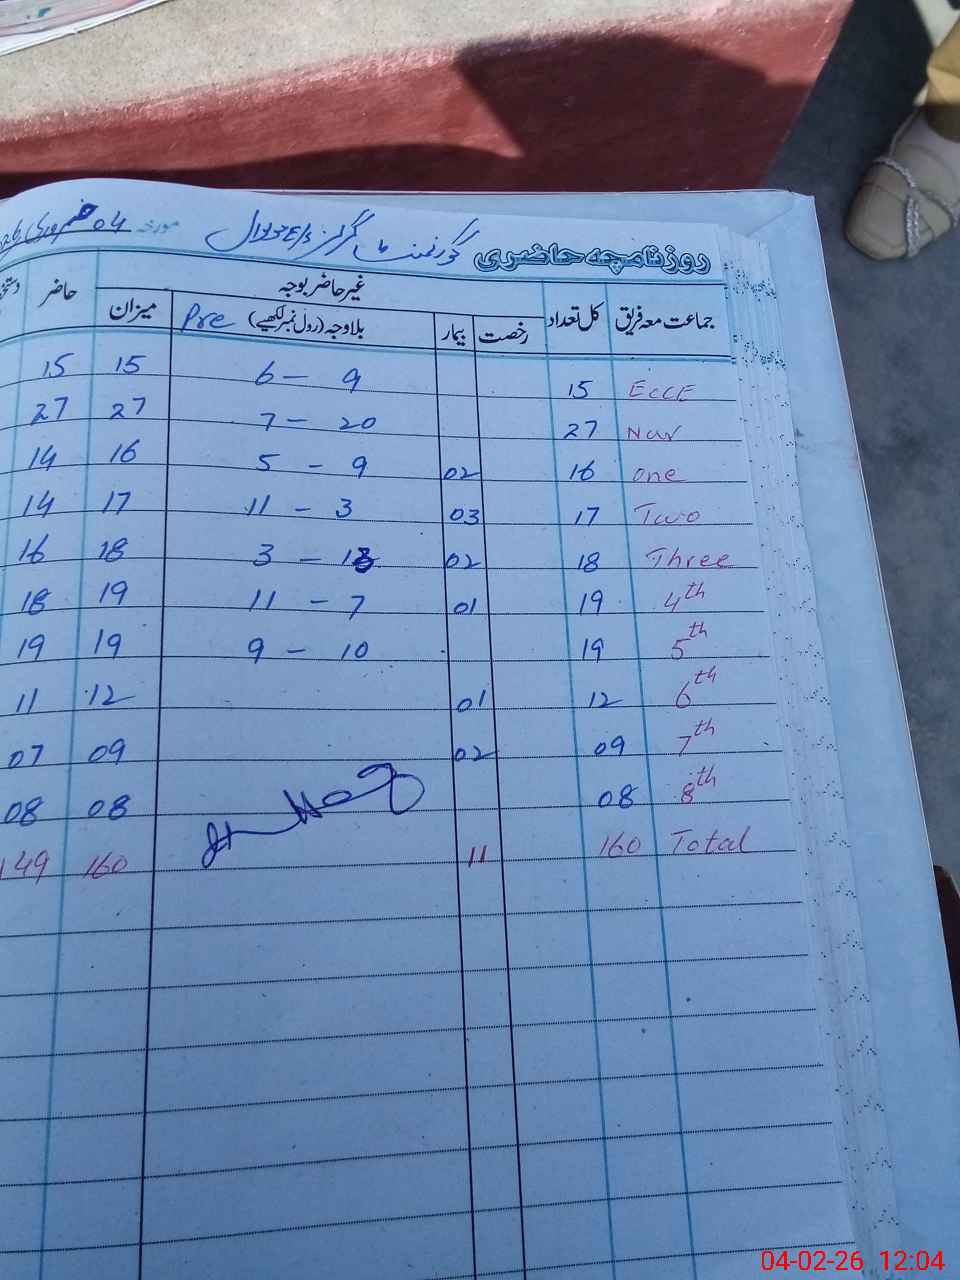 روزنامچہ حاضری گورنمنٹ گرلز مورخہ 04 فروری
جماعت معہ فریق کل تعداد غیر حاضر بوجہ حاضر
رخصت بیمار بلاوجہ (رول نمبر لکھیے) Pre میزان
ECCE 15 6 - 9 15 15
Nur 27 7 - 20 27 27
one 16 02 5 - 9 16 14
Two 17 03 11 - 3 17 14
Three 18 02 3 - 13 18 16
4th 19 01 11 - 7 19 18
5th 19 9 - 10 19 19
6th 12 01 12 11
7th 09 02 09 07
8th 08 08 08
Total 160 11 160 149
04-02-26 12:04